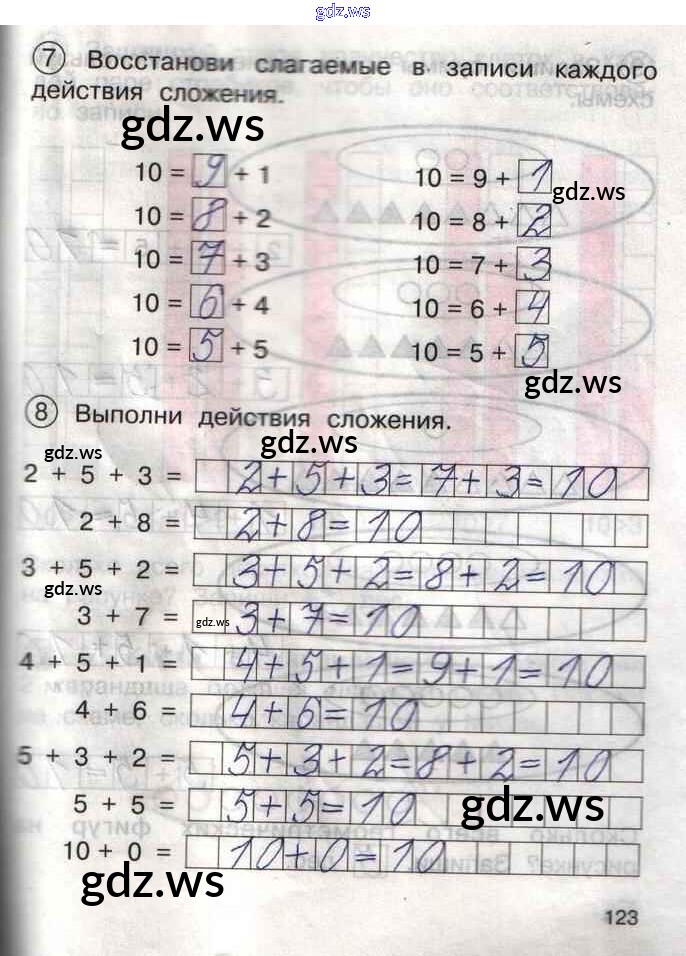 gdz.ws
7 Восстанови слагаемые в записи каждого
действия сложения.
gdz.ws
10 = 9 + 1
10 = 9 + 1
gdz.ws
10 = 8 + 2
10 = 8 + 2
10 = 7 + 3
10 = 7 + 3
10 = 6 + 4
10 = 6 + 4
10 = 5 + 5
10 = 5 + 5
gdz.ws
8 Выполни действия сложения.
gdz.ws
gdz.ws
2 + 5 + 3 = 2+5+3=7+3=10
2 + 8 = 2+8=10
3 + 5 + 2 = 3+5+2=8+2=10
gdz.ws
3 + 7 = gdz.ws 3+7=10
4 + 5 + 1 = 4+5+1=9+1=10
4 + 6 = 4+6=10
5 + 3 + 2 = 5+3+2=8+2=10
5 + 5 = 5+5=10
gdz.ws
10 + 0 = 10+0=10
gdz.ws
123